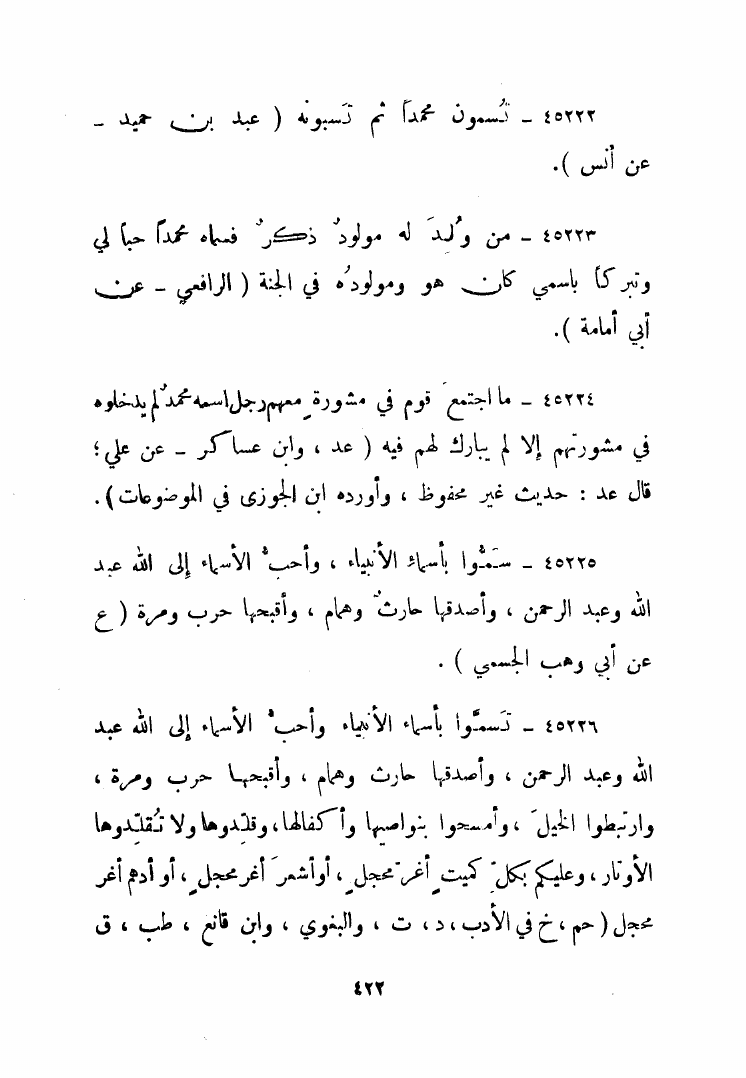 ٤٥٢٢٢ – تُسمون محمداً ثم تَسبونه ( عبد بن حميد –
عن أنس ).
٤٥٢٢٣ – من وُلِدَ له مولودٌ ذكرٌ فسماه محمداً حباً لي
وتبركاً باسمي كان هو ومولودُه في الجنة ( الرافعي – عن
أبي أمامة ).
٤٥٢٢٤ – ما اجتمعَ قوم في مشورةٍ معهم رجل اسمه محمدٌ لم يدخلوه
في مشورتهم إلا لم يبارك لهم فيه ( عد ، وابن عساكر – عن علي ؛
قال عد : حديث غير محفوظ ، وأورده ابن الجوزى في الموضوعات ) .
٤٥٢٢٥ – سَمُّوا بأسماء الأنبياء ، وأحبُّ الأسماء إلى الله عبد
الله وعبد الرحمن ، وأصدقها حارثٌ وهمام ، وأقبحها حرب ومرة ( ع
عن أبي وهب الجسمي ) .
٤٥٢٢٦ – تَسمَّوا بأسماء الأنبياء وأحبُّ الأسماء إلى الله عبد
الله وعبد الرحمن ، وأصدقها حارث وهمام ، وأقبحها حرب ومرة ،
وارتبطوا الخيلَ ، وأمسحوا بنواصيها وأكفالها ، وقلِّدوها ولا تُقلِّدوها
الأوتار ، وعليكم بكلِّ كميتٍ أغرَّ محجلٍ ، أو أشعرَ أغر محجلٍ ، أو أدهم أغر
محجل ( حم ، خ في الأدب ، د ، ت ، والبغوي ، وابن قانع ، طب ، ق
٤٢٢